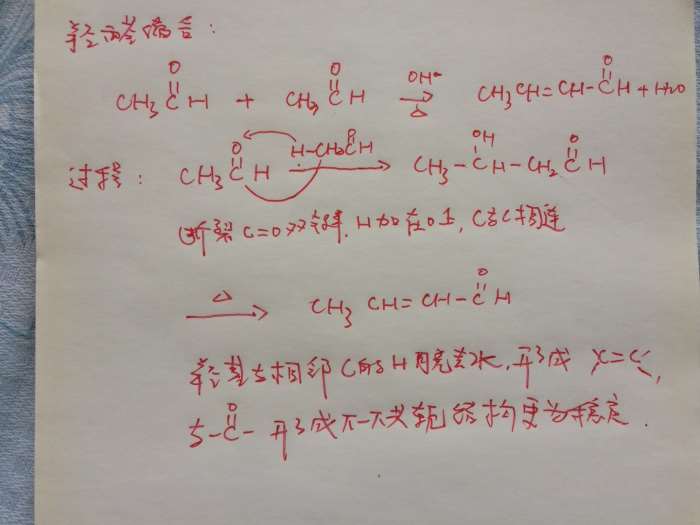 羟醛缩合:
CH₃CHO + CH₃CHO →(OH⁻, △) CH₃CH=CH-CHO + H₂O
过程: CH₃CHO H-CH₂CHO → CH₃-CH(OH)-CH₂CHO
断裂C=O双键,H加在O上,C与C相连
△→ CH₃CH=CH-CHO
羟基与相邻C的H脱去水,形成 C=C,
与-C(=O)-形成π-π共轭结构更为稳定.